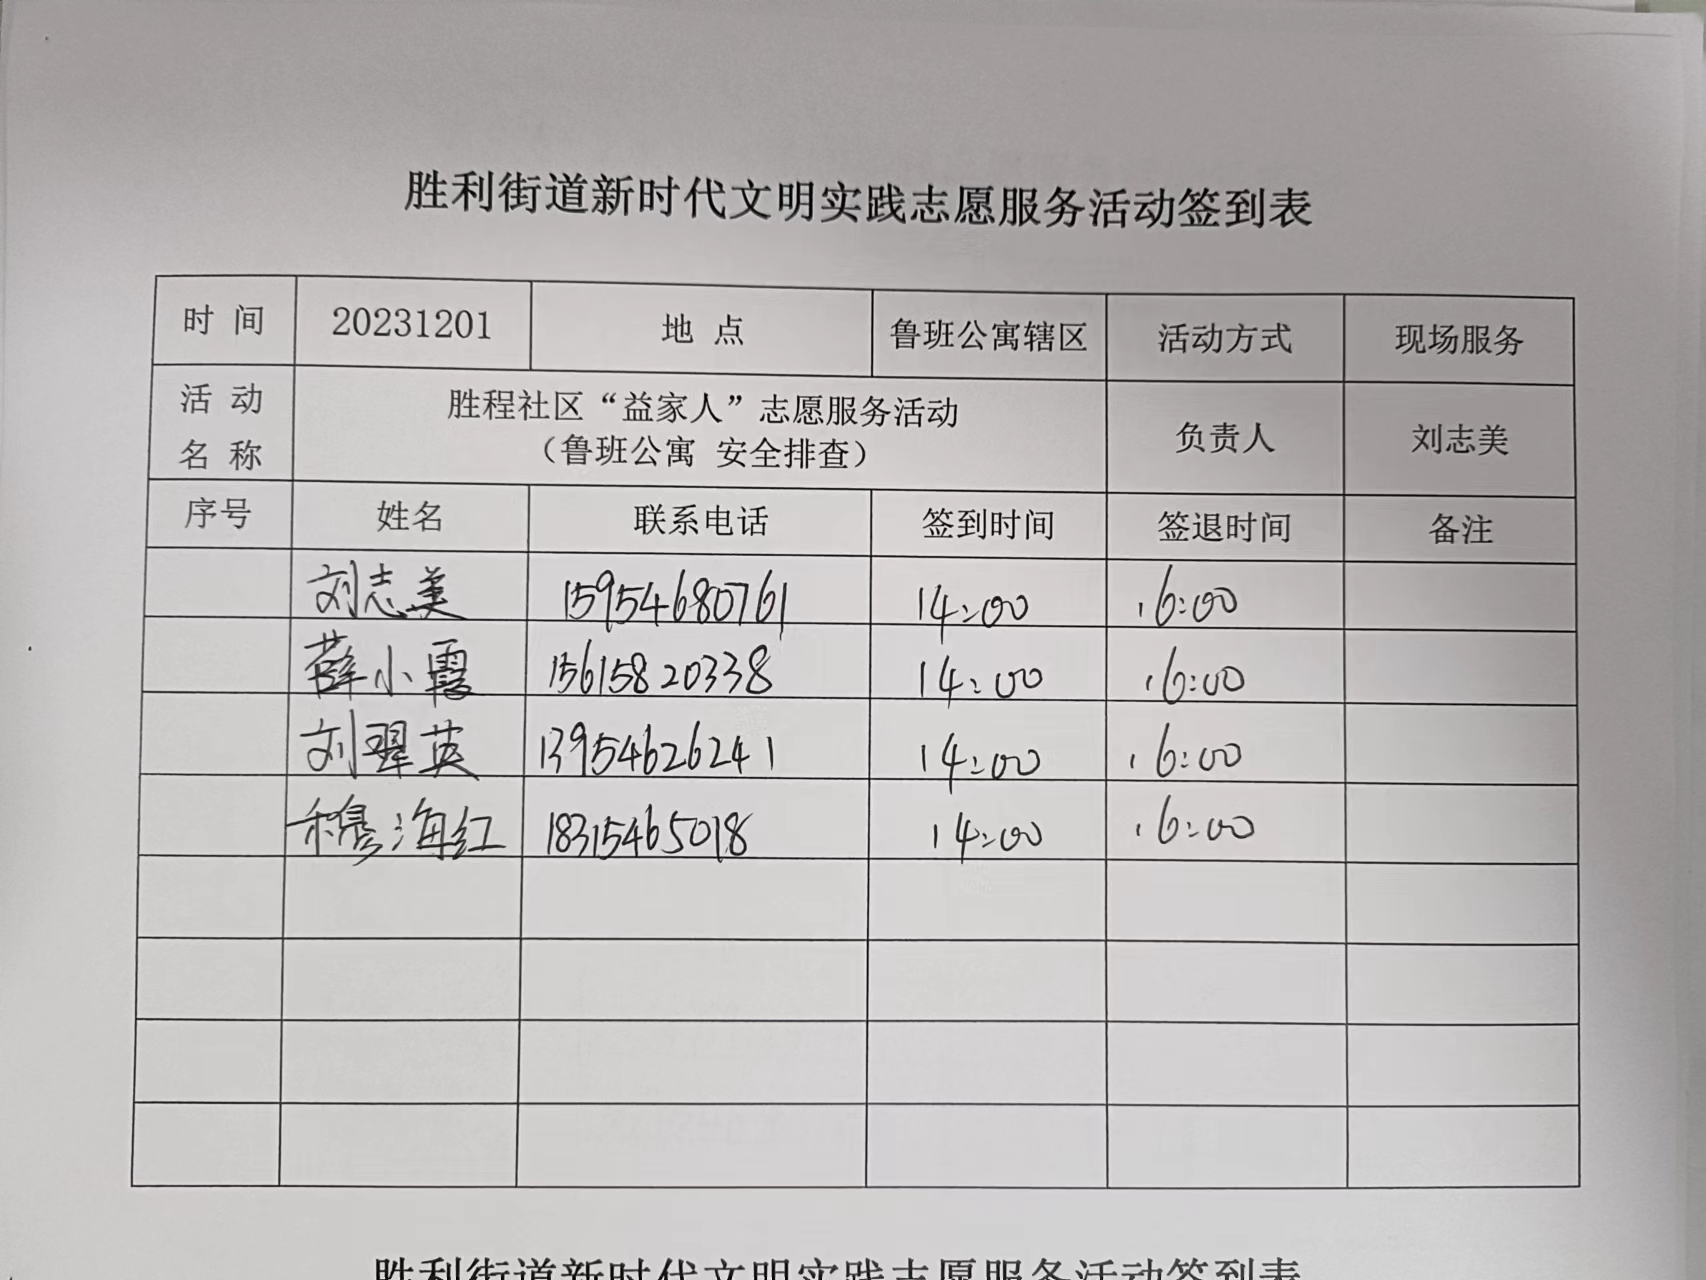 胜利街道新时代文明实践志愿服务活动签到表
时 间 20231201 地 点 鲁班公寓辖区 活动方式 现场服务
活 动 名 称 胜程社区“益家人”志愿服务活动 负责人 刘志美
（鲁班公寓 安全排查）
序号 姓名 联系电话 签到时间 签退时间 备注
刘志美 15954680761 14:00 16:00
薛小霞 15615820338 14:00 16:00
刘翠英 13954626241 14:00 16:00
穆海红 18315465018 14:00 16:00
胜利街道新时代文明实践志愿服务活动签到表